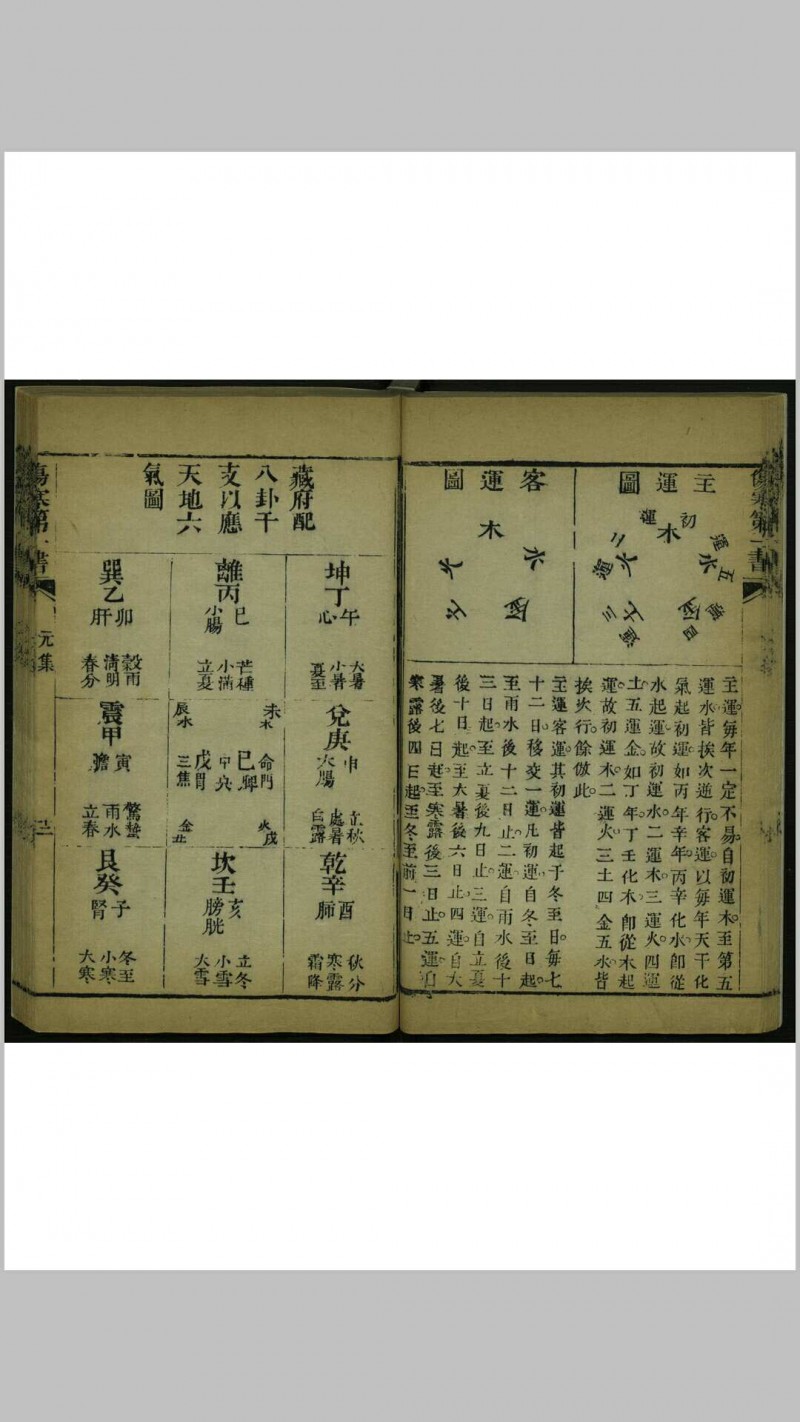 傷寒第一書
主運圖
初運
木
二運
火
三運
土
四運
金
五運
水
主運每年一定不易自初運木至第五
運水皆挨次遊行客運以每年天干化
氣起初運如丙年辛年丙辛化水即從
水起運故初運水二運木三運火四運
土五運金如丁年丁壬化木即從木起
運故初運木二運火三土四金五水皆
挨次行餘倣此
客運圖
木
火
土
金
水
主運客運其初運皆起于冬至日每七
十二日移交一運凡初運自冬至日起
至雨水後十二日止二運自雨水後十
三日起至立夏後九日止三運自立夏
後十日起至大暑後六日止四運自大
暑後七日起至寒露後三日止五運自
寒露後四日起至冬至前一日止
藏府配
八卦干
支以應
天地六
氣圖
坤丁
午
心
大暑
小暑
夏至
離丙
巳
小腸
芒種
小滿
立夏
巽乙
卯
肝
穀雨
清明
春分
兌庚
申
大腸
立秋
處暑
白露
未木
命門
己脾
中央
戊胃
三焦
辰水
火戌
金丑
震甲
寅
膽
驚蟄
雨水
立春
乾辛
酉
肺
秋分
寒露
霜降
坎壬
亥
膀胱
立冬
小雪
大雪
艮癸
子
腎
冬至
小寒
大寒
傷寒第一書
元集